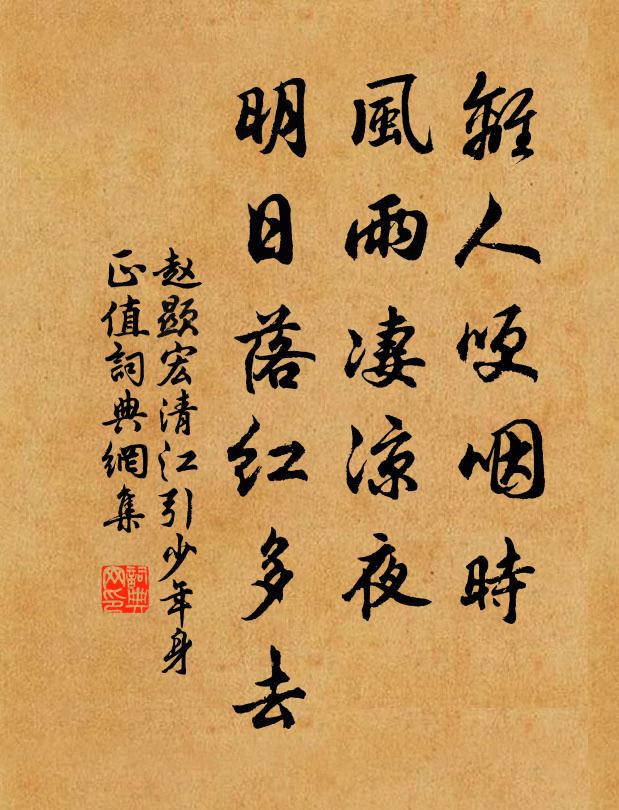 離人哽咽時
風雨凄涼夜
明日落紅多去
赵顯宏清江引少年身
正值詞典網集
詞典
网印